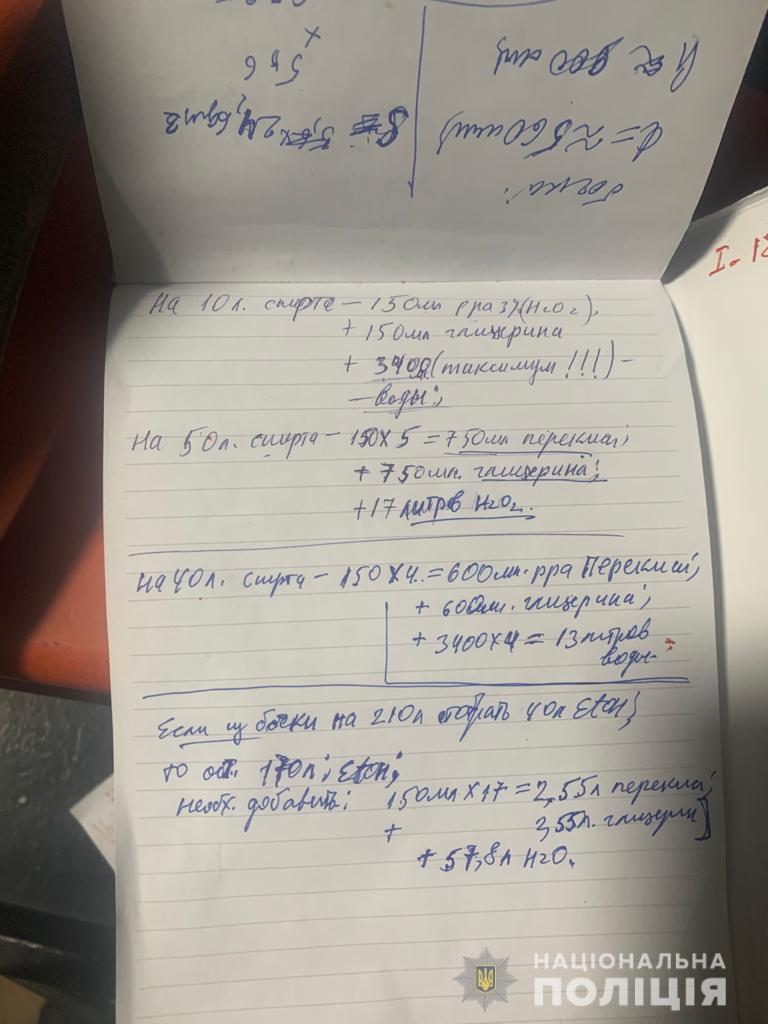 бочка:
l = ≈ 560 мм
5 5 6
×
На 10л. спирта – 150мл рра 3%(H2O2),
+ 150мл глицерина
+ 3400 (максимум!!!) –
– воды;
На 50л. спирта – 150 x 5 = 750мл перекиси;
+ 750мл. глицерина;
+ 17 литров H2O.
на 40л. спирта – 150 x 4. = 600мл. рра Перекиси;
+ 600мл. глицерина;
+ 3400 x 4 = 13 литров
воды.
Если из бочки на 210л отобрать 40л EtOH;
то ост. 170л; EtOH;
необх. добавить: 150мл x 17 = 2,55л перекиси;
+ 2,55л. глицерин
+ 57,8л H2O.
I.
НАЦІОНАЛЬНА
ПОЛІЦІЯ